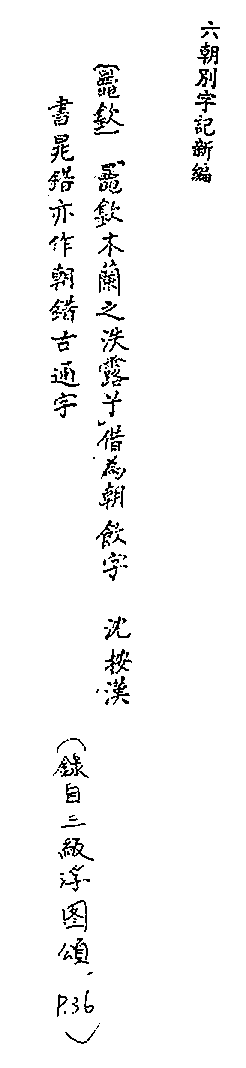 六朝別字記新編
〔鼂飲〕「鼂飲木蘭之泆露」借為朝飲字 沈按漢
書晁錯亦作朝錯古通字
(錄自三級浮图頌，P.36)